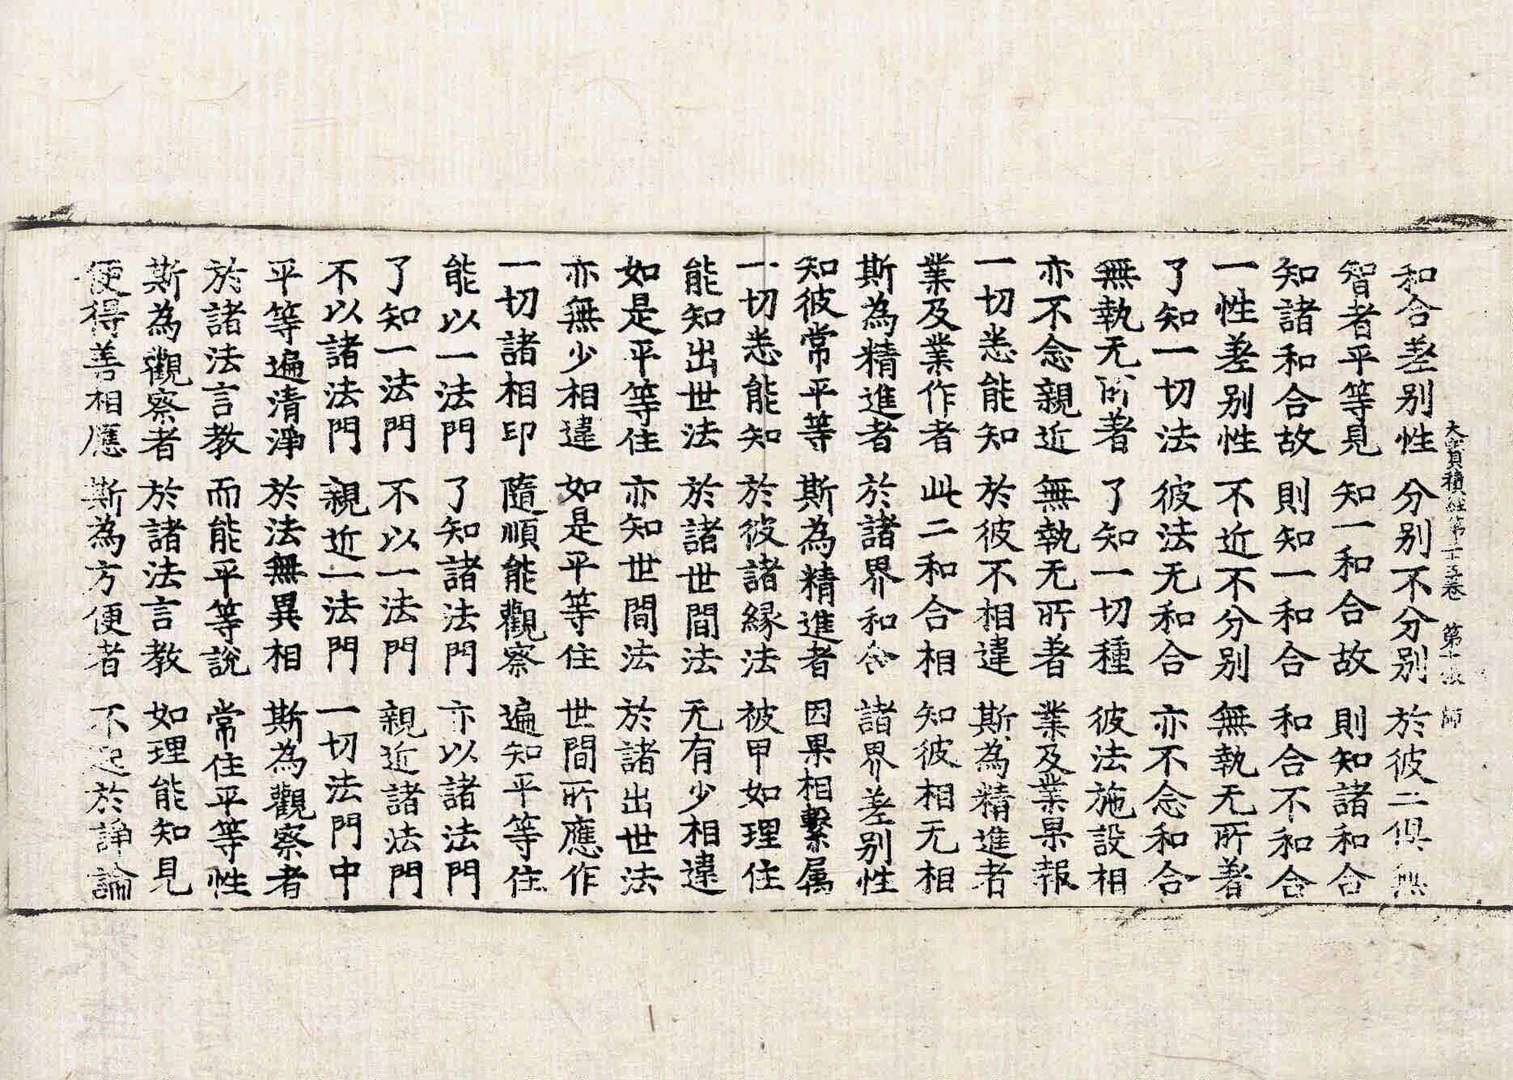 大寶積經第廿五卷 第十張 師
和合差别性 分别不分别 於彼二俱無
智者平等見 知一和合故 則知諸和合
知諸和合故 則知一和合 和合不和合
一性差别性 不近不分别 無執无所著
了知一切法 彼法无和合 亦不念和合
無執无所著 了知一切種 彼法施設相
亦不念親近 無執无所著 業及業果報
一切悉能知 於彼不相違 斯為精進者
業及業作者 此二和合相 知彼相无相
斯為精進者 於諸界和合 諸界差别性
知彼常平等 斯為精進者 因果相繫属
一切悉能知 於彼諸縁法 被甲如理住
能知出世法 於諸世間法 无有少相違
如是平等住 亦知世間法 於諸出世法
亦無少相違 如是平等住 世間所應作
一切諸相印 隨順能觀察 遍知平等住
能以一法門 了知諸法門 亦以諸法門
了知一法門 不以一法門 親近諸法門
不以諸法門 親近一法門 一切法門中
平等遍清淨 於法無異相 斯為觀察者
於諸法言教 而能平等說 常住平等性
斯為觀察者 於諸法言教 如理能知見
便得善相應 斯為方便者 不起於諍論